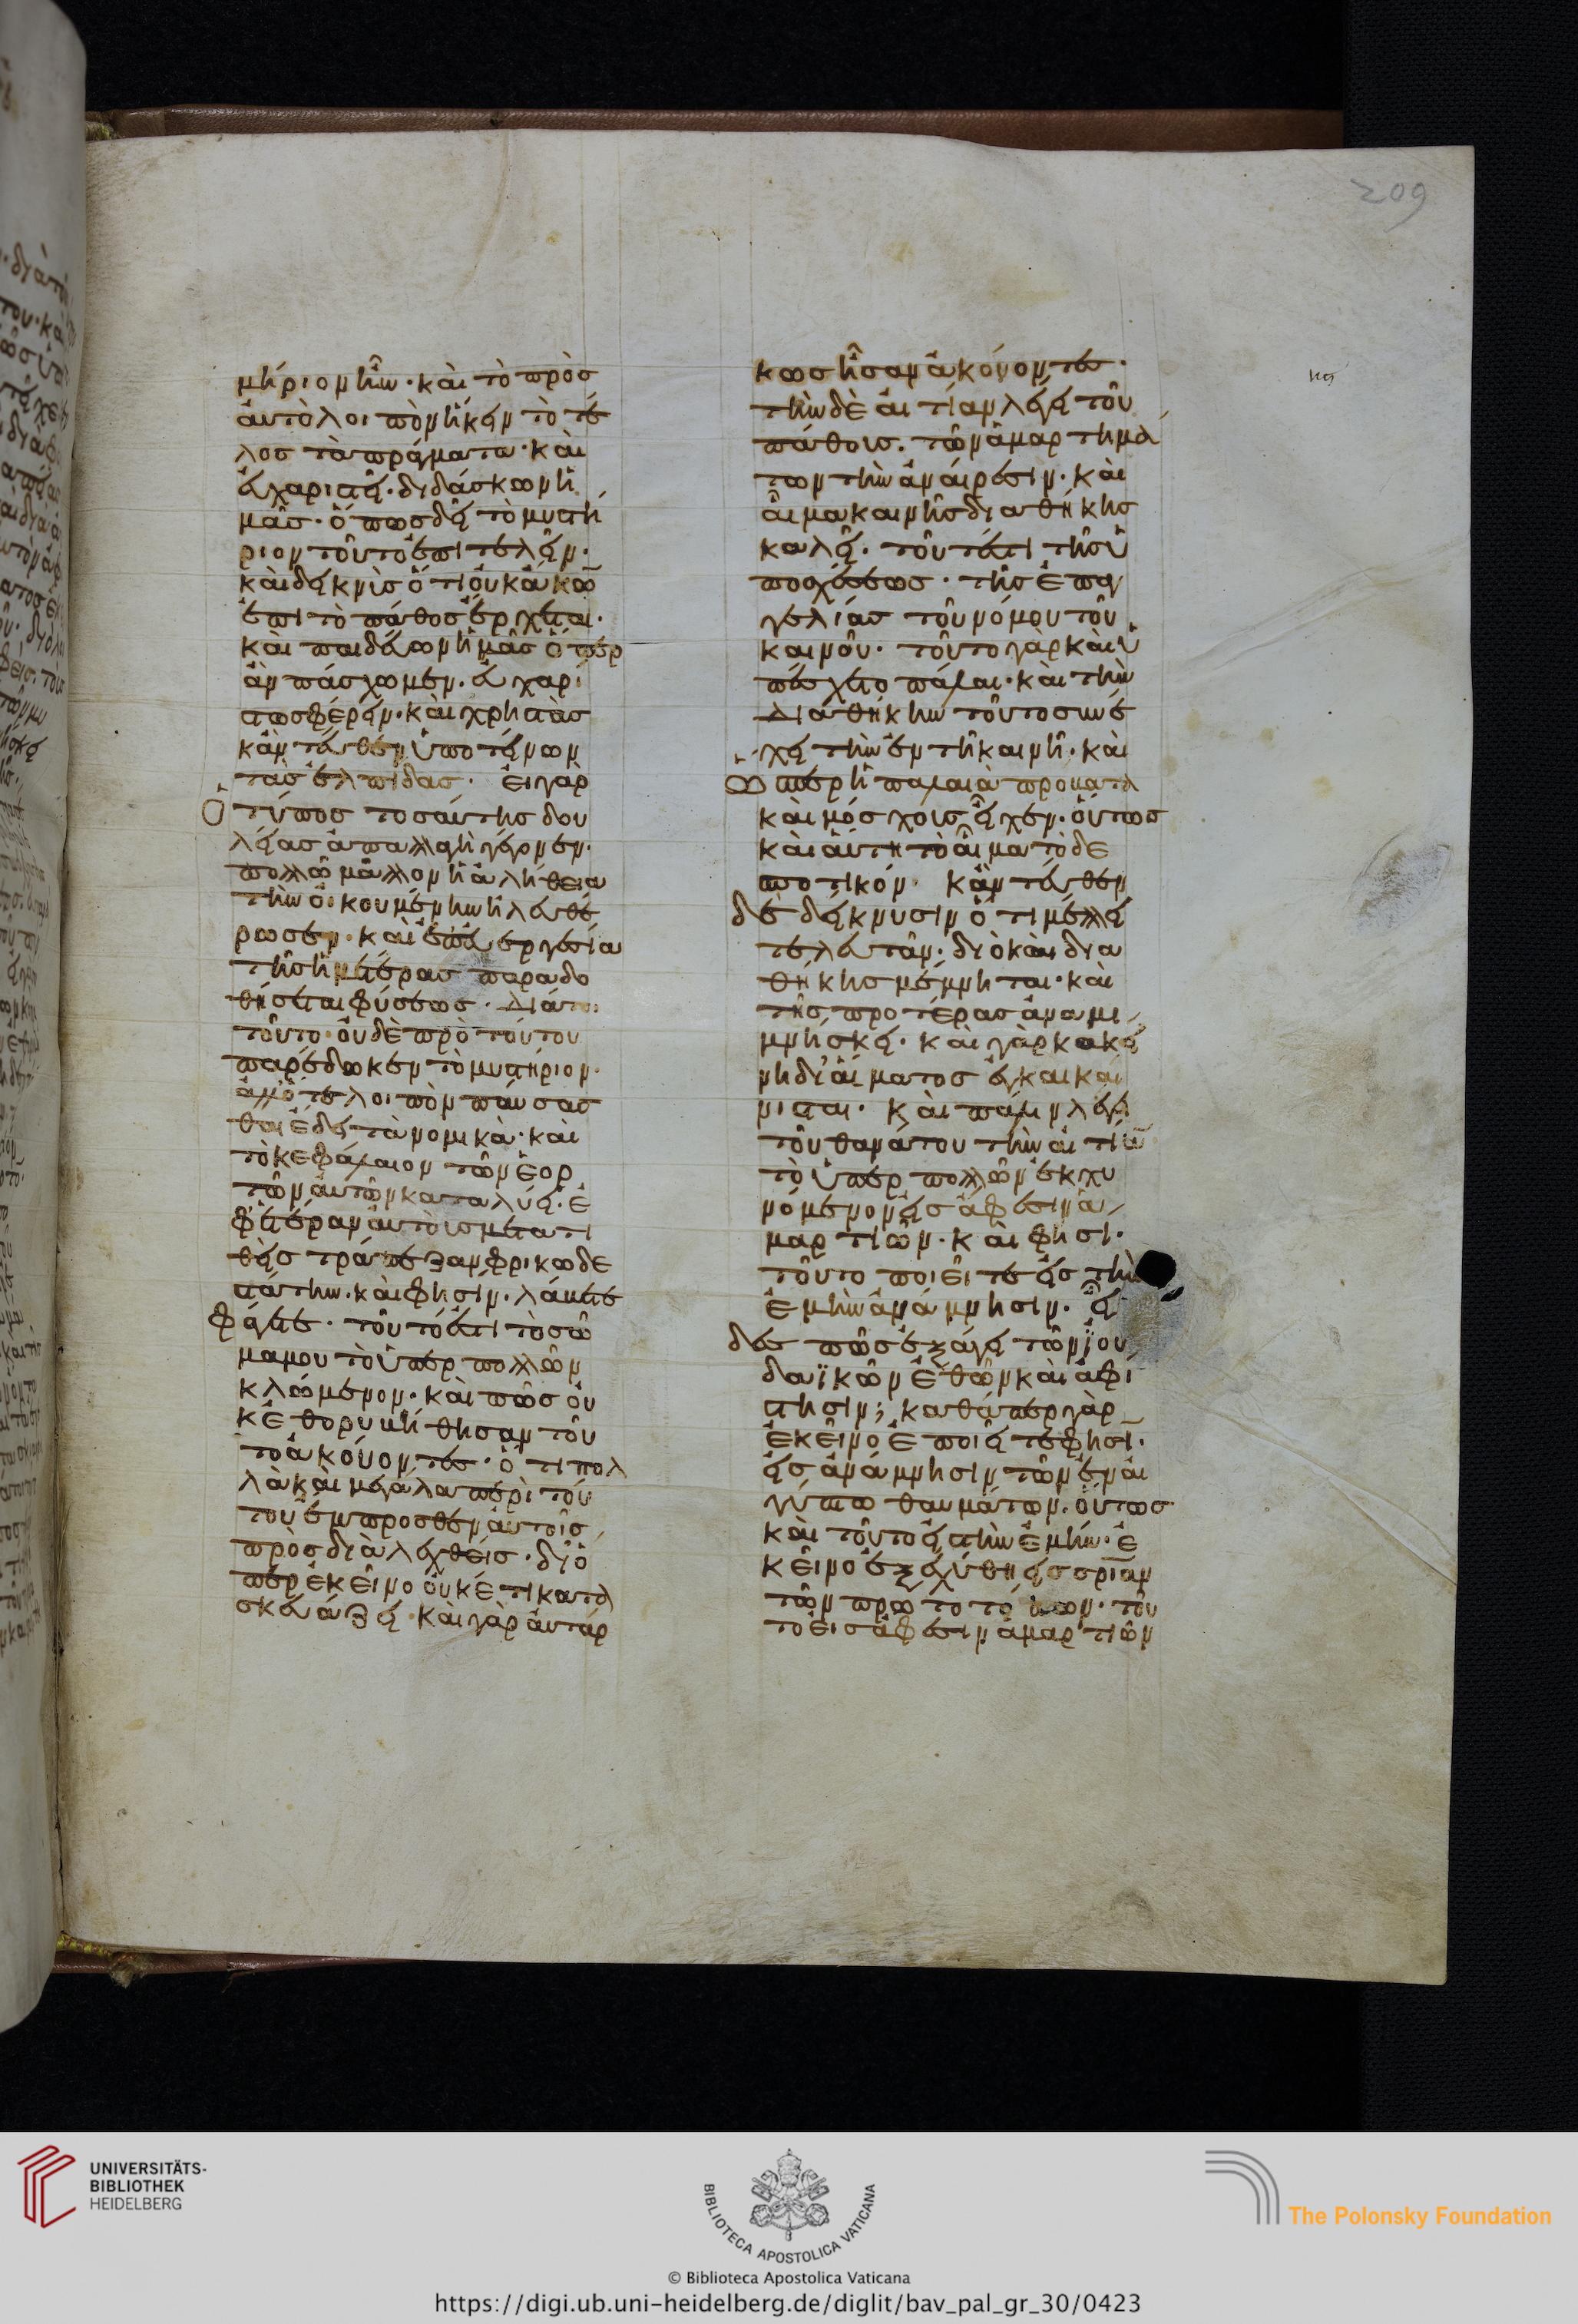 μήριον ἦν· καὶ τὸ πρὸς
αὐτὸ λοιπὸν ἥκειν τὸ τέ
λος τὰ πράγματα· καὶ
εὐχαριστεῖ· διδάσκων ἡ
μᾶς· ὅπως δεῖ τὸ μυστή
ριον τοῦτο ἐπιτελεῖν·
καὶ δεικνὺς ὅτι οὐκ ἄκων
ἐπὶ τὸ πάθος ἔρχεται·
καὶ παιδεύων ἡμᾶς ὅπερ
ἂν πάσχωμεν· εὐχαρί
στως φέρειν· καὶ χρηστὰς
κἀντεῦθεν ὑποτείνων
τὰς ἐλπίδας· εἰ γὰρ
ὁ τύπος τοσαύτης δου
λείας ἀπαλλαγὴ γέγονεν·
πολλῶ μᾶλλον ἡ ἀλήθεια
τὴν οἰκουμένην ἠλευθέ
ρωσεν· καὶ ἐπευεργεσία
τῆς ἡμετέρας παραδο
θήσεται φύσεως· διάτοι
τοῦτο· οὐδὲ πρὸ τούτου
παρέδωκεν τὸ μυστήριον·
ἀλλ' ὅτε λοιπὸν παύσασ
θαι ἔδει τὰ νομικὰ· καὶ
τὸ κεφάλαιον τῶν ἑορ
τῶν αὐτῶν καταλύει· ἐ
φ' ἑτέραν αὐτοὺς μετατι
θεὶς τράπεζαν φρικωδε
στάτην· καὶ φησίν· λάβετε
φάγετε· τοῦτό ἐστι τὸ σῶ
μα μου τὸ ὑπὲρ πολλῶν
κλώμενον· καὶ πῶς οὐ
κ ἐθορυβήθησαν τοῦ
το ἀκούοντες· ὅτι πολ
λὰ καὶ μεγάλα περὶ τού
του ἔμπροσθεν αὐτοῖς
προσδιαλεχθείς· διό
περ ἐκεῖνο οὐκέτι κατα
σκευάζει· καὶ γὰρ αὐτάρ
κως ἦσαν ἀκούοντες·
τὴν δὲ αἰτίαν λέγει τοῦ
πάθους· τῶν ἁμαρτημά
των τὴν ἀναίρεσιν· καὶ
αἷμα καινῆς διαθήκης
καλεῖ· τοῦτέστι τῆς ὑ
ποσχέσεως· τῆς ἐπαγ
γελίας τοῦ νόμου τοῦ
καινοῦ· τοῦτο γὰρ καὶ ὑ
πέσχετο πάλαι· καὶ τὴν
διαθήκην τοῦτο συνέ
χει τὴν ἐν τῆ καινῆ· καὶ
ὥσπερ ἡ παλαιὰ πρόβατα
καὶ μόσχους εἶχεν· οὕτως
καὶ αὐτη τὸ αἷμα τὸ δε
σποτικόν· κἀντεῦθεν
δὲ δείκνυσιν ὅτι μέλλει
τελευτᾶν· διὸ καὶ δια
θήκης μέμνηται· καὶ
τῆς προτέρας ἀναμι
μνήσκει· καὶ γὰρ κἀκεί
νη δι' αἵματος ἐγκεκαί
νισται· καὶ πάλιν λέγει
τοῦ θανάτου τὴν αἰτίαν
τὸ ὑπὲρ πολλῶν ἐκχυ
νόμενον εἰς ἄφεσιν ἁ
μαρτιῶν· καὶ φησι·
τοῦτο ποιεῖτε εἰς τὴν
ἐμὴν ἀνάμνησιν· εἶ
δες πῶς ἐξάγει τῶν ἰου
δαϊκῶν ἐθῶν καὶ ἀφί
στησιν; καθάπερ γὰρ
ἐκεῖνο ἐποιεῖτε φησί·
εἰς ἀνάμνησιν τῶν ἐν αἰ
γύπτω θαυμάτων· οὕτως
καὶ τοῦτο εἰς τὴν ἐμήν· ἐ
κεῖνο ἐξεχύθη εἰς σρίαν
τῶν πρωτοτόκων· τοῦ
το εἰς ἄφεσιν ἁμαρτιῶν
209
UNIVERSITÄTS-
BIBLIOTHEK
HEIDELBERG
BIBLIOTECA APOSTOLICA VATICANA
© Biblioteca Apostolica Vaticana
The Polonsky Foundation
https://digi.ub.uni-heidelberg.de/diglit/bav_pal_gr_30/0423